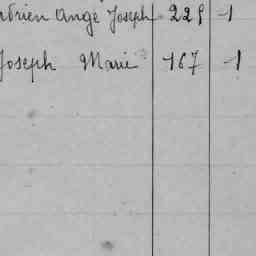 Adrien Ange Joseph 225 1
Joseph Marie 167 1